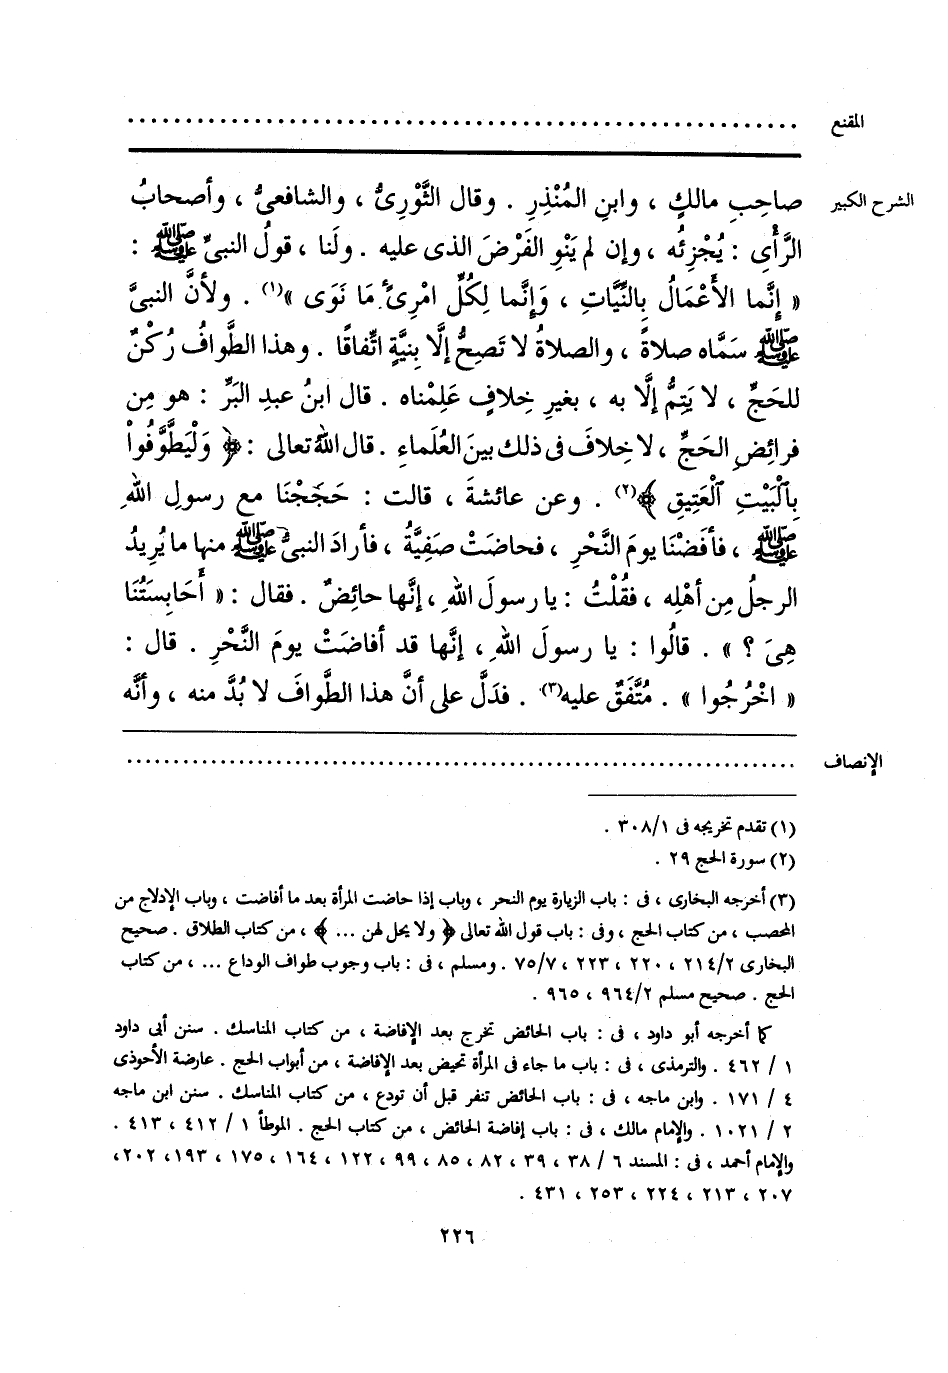 المقنع ............................................................
الشرح الكبير صاحِبِ مالكٍ ، وابنِ المُنْذِرِ . وقال الثَّوْرِىُّ ، والشافعىُّ ، وأصحابُ
الرَّأْىِ : يُجْزِئُه ، وإن لم يَنْوِ الفَرْضَ الذى عليه . ولَنا ، قولُ النبىِّ ﷺ :
« إِنَّما الأَعْمَالُ بِالنِّيَّاتِ ، وَإِنَّما لِكُلِّ امْرِئٍ مَا نَوَى »(١) . ولأنَّ النبىَّ
ﷺ سَمَّاه صلاةً ، والصلاةُ لا تَصِحُّ إلَّا بِنيَّةٍ اتِّفاقًا . وهذا الطَّوافُ رُكْنٌ
للحَجِّ ، لا يَتِمُّ إلَّا به ، بغيرِ خِلافٍ عَلِمْناه . قال ابنُ عبدِ البَرِّ : هو مِن
فرائِضِ الحَجِّ ، لا خِلافَ فى ذلك بينَ العُلَماءِ . قال اللهُ تعالى : ﴿ وَلْيَطَّوَّفُواْ
بِالْبَيْتِ الْعَتِيقِ ﴾(٢) . وعن عائشةَ ، قالت : حَجَجْنَا مع رسولِ اللهِ
ﷺ ، فأفَضْنَا يومَ النَّحْرِ ، فحاضَتْ صَفِيَّةُ ، فأرادَ النبىُّ ﷺ منها ما يُرِيدُ
الرجلُ مِن أهْلِه ، فقُلْتُ : يا رسولَ اللهِ ، إنَّها حائِضٌ . فقال : « أَحَابِسَتُنَا
هِىَ ؟ » . قالُوا : يا رسولَ اللهِ ، إنَّها قد أفاضَتْ يومَ النَّحْرِ . قال :
« اخْرُجُوا » . مُتَّفَقٌ عليه(٣) . فدَلَّ على أنَّ هذا الطَّوافَ لا بُدَّ منه ، وأنَّه
الإنصاف ............................................................
(١) تقدم تخريجه فى ٣٠٨/١ .
(٢) سورة الحج ٢٩ .
(٣) أخرجه البخارى ، فى : باب الزيارة يوم النحر ، وباب إذا حاضت المرأة بعد ما أفاضت ، وباب الإدلاج من
المحصب ، من كتاب الحج ، وفى : باب قول الله تعالى ﴿ ولا يحل لهن ... ﴾ ، من كتاب الطلاق . صحيح
البخارى ٢١٤/٢ ، ٢٢٠ ، ٢٢٣ ، ٧٥/٧ . ومسلم ، فى : باب وجوب طواف الوداع ... ، من كتاب
الحج . صحيح مسلم ٩٦٤/٢ ، ٩٦٥ .
كما أخرجه أبو داود ، فى : باب الحائض تخرج بعد الإفاضة ، من كتاب المناسك . سنن أبى داود
١ / ٤٦٢ . والترمذى ، فى : باب ما جاء فى المرأة تحيض بعد الإفاضة ، من أبواب الحج . عارضة الأحوذى
٤ / ١٧١ . وابن ماجه ، فى : باب الحائض تنفر قبل أن تودع ، من كتاب المناسك . سنن ابن ماجه
٢ / ١٠٢١ . والإمام مالك ، فى : باب إفاضة الحائض ، من كتاب الحج . الموطأ ١ / ٤١٢ ، ٤١٣ .
والإمام أحمد ، فى : المسند ٦ / ٣٨ ، ٣٩ ، ٨٢ ، ٨٥ ، ٩٩ ، ١٢٢ ، ١٦٤ ، ١٧٥ ، ١٩٣ ، ٢٠٢ ،
٢٠٧ ، ٢١٣ ، ٢٢٤ ، ٢٥٣ ، ٤٣١ .
٢٢٦